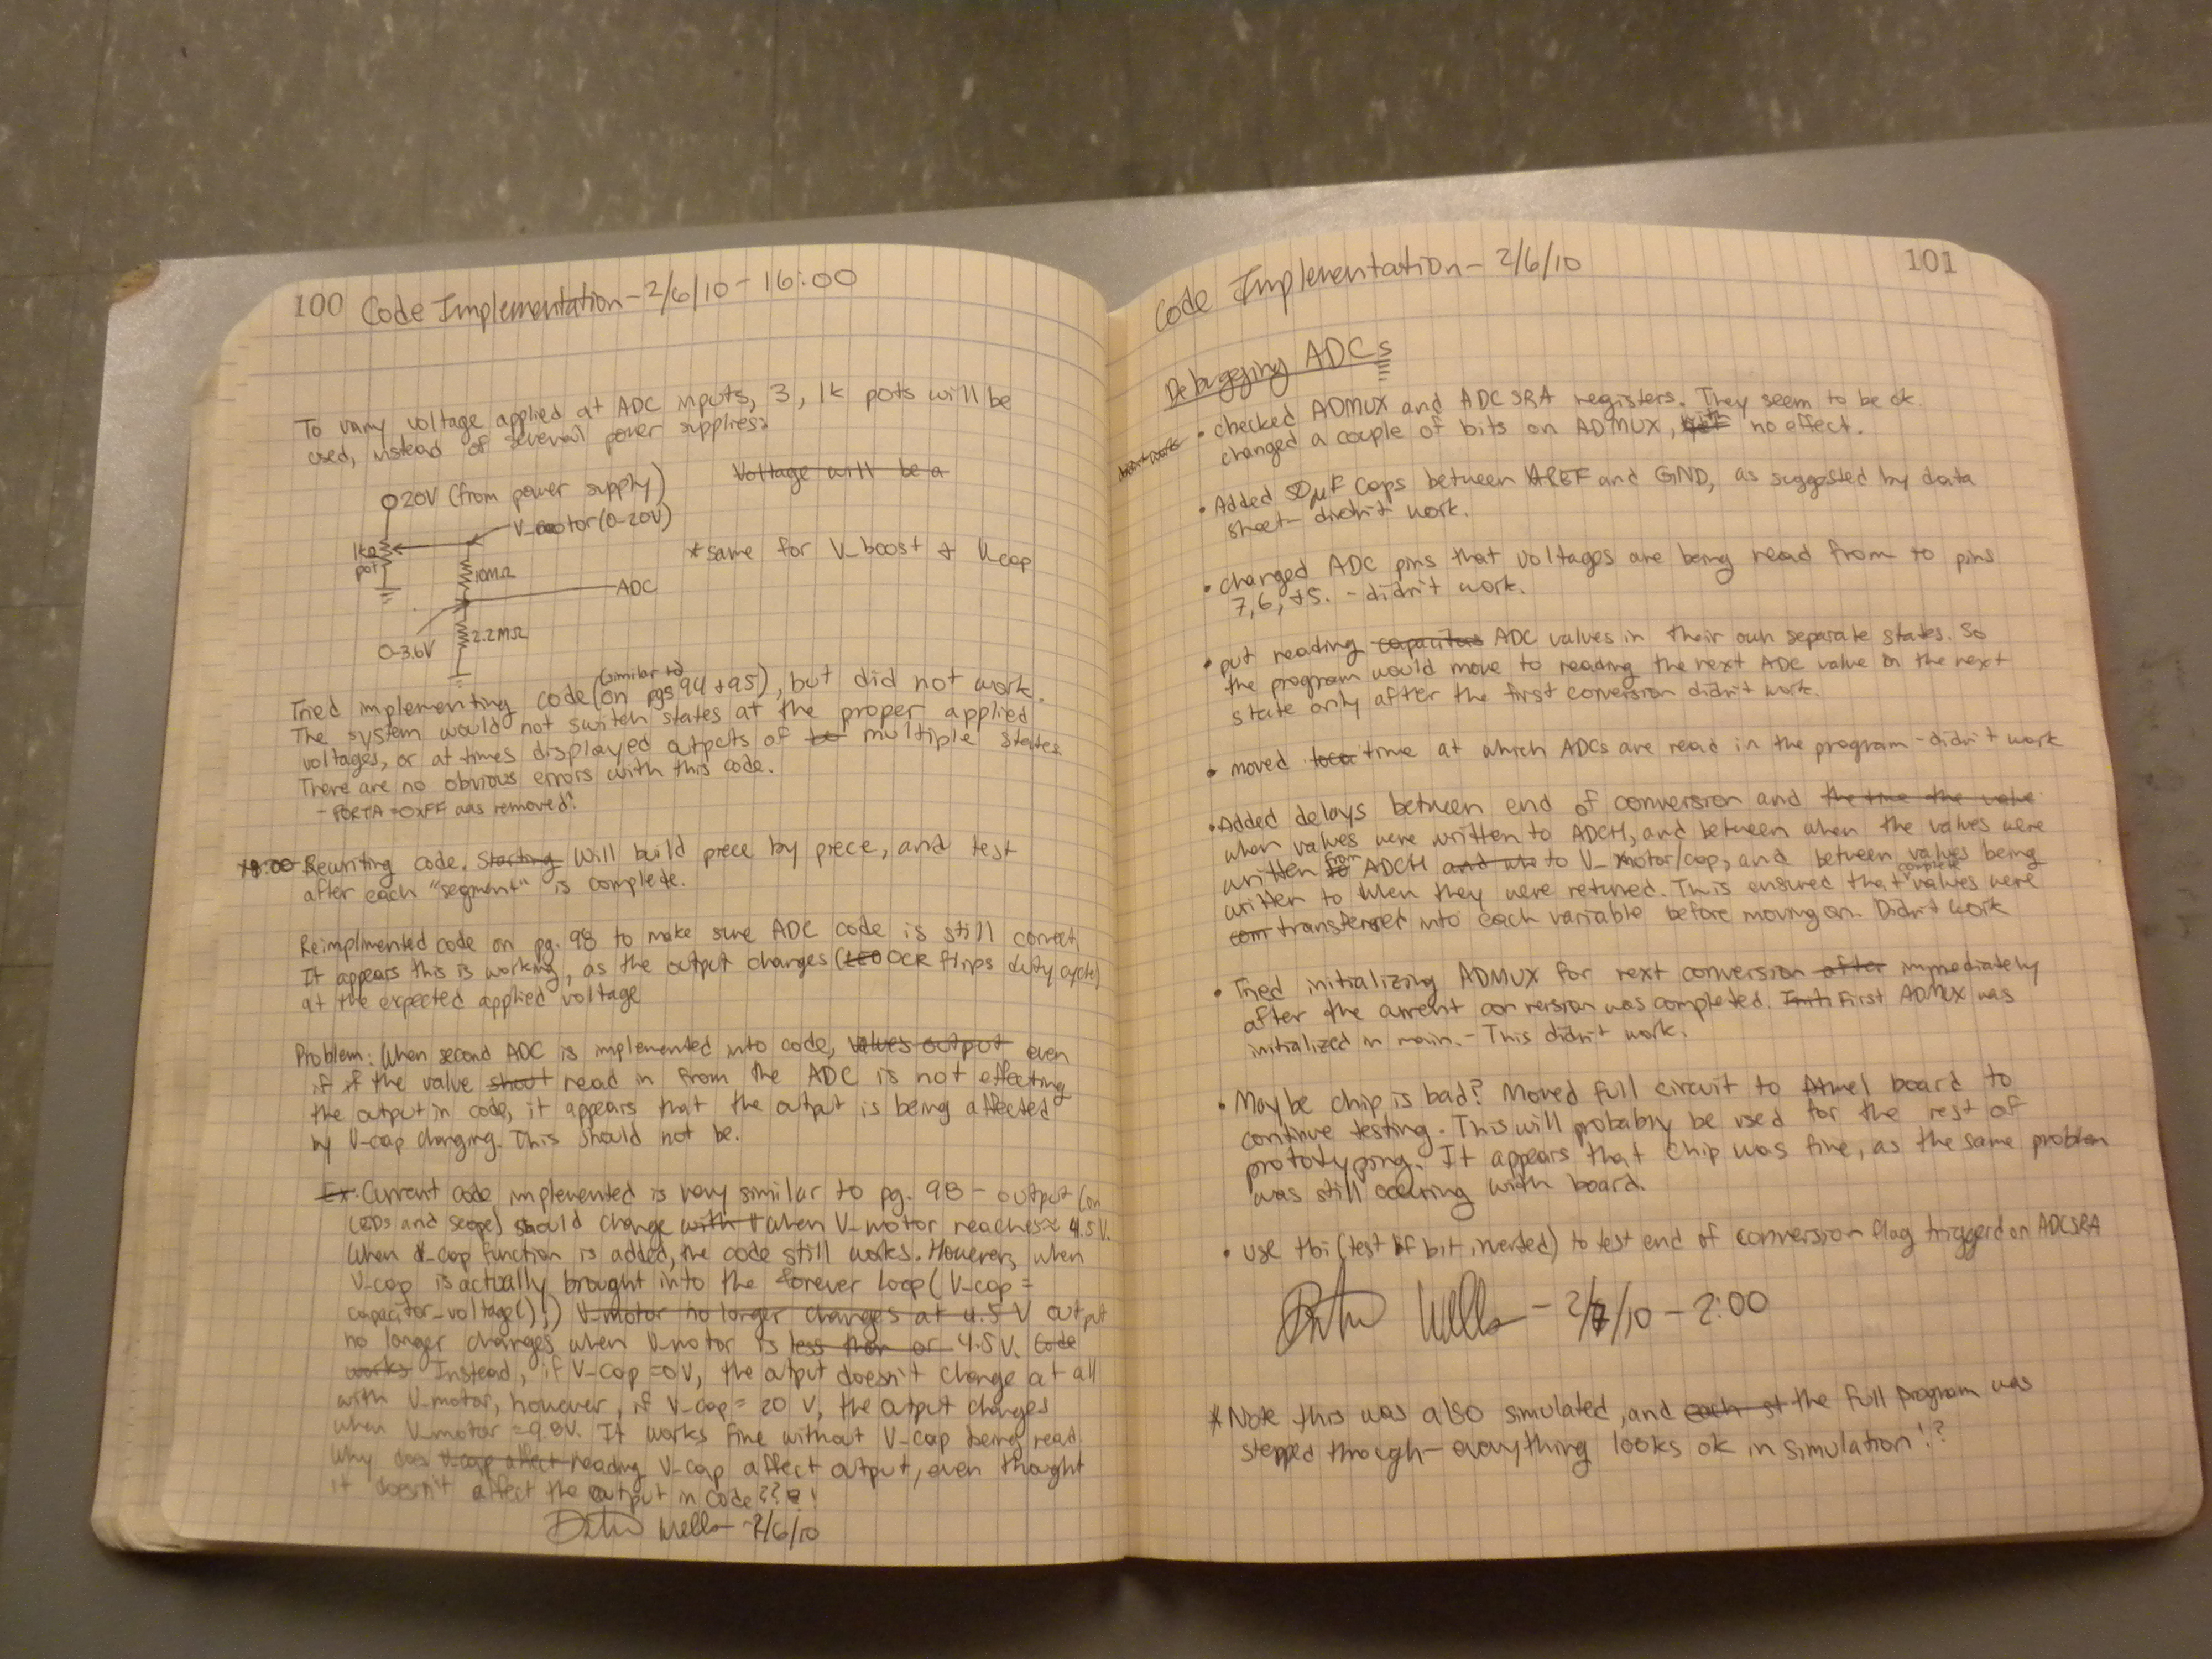 100 Code Implementation - 2/6/10 - 16:00
To vary voltage applied at ADC inputs, 3, 1k pots will be
used, instead of several power supplies:
Voltage will be a
20V (from power supply)
V_motor (0-20V)
1kΩ
pot
*same for V_boost & V_cap
10MΩ
ADC
2.2MΩ
0-3.6V
(similar to)
Tried implementing code (on pgs 94 + 95), but did not work.
The system would not switch states at the proper applied
voltages, or at times displayed outputs of multiple states.
There are no obvious errors with this code.
- PORTA = 0xFF was removed?
Rewriting code. Starting Will build piece by piece, and test
after each "segment" is complete.
Reimplimented code on pg. 98 to make sure ADC code is still correct.
It appears this is working, as the output changes (LED OCR flips duty cycle)
at the expected applied voltage
Problem: When second ADC is implemented into code, values output even
if if the value shout read in from the ADC is not effecting
the output in code, it appears that the output is being affected
by V-cap changing. This should not be.
Ex. Current code implemented is very similar to pg. 98 - output (on
LEDs and scope) should change with t when V-motor reaches ≈ 4.5V.
When V-cap function is added, the code still works. However, when
V-cap is actually brought into the forever loop (V-cap =
capacitor_voltage();) V-motor no longer changes at 4.5 V output
no longer changes when V-motor is less than or 4.5V. Code
works Instead, if V-cap = 0V, the output doesn't change at all
with V-motor, however, if V-cap = 20 V, the output changes
when V-motor = 9.8V. It works fine without V-cap being read.
Why does V-cap affect reading V-cap affect output, even thought
it doesn't affect the output in code???!
Wells - 2/6/10
Code Implementation - 2/6/10 101
Debugging ADCs
• checked ADMUX and ADCSRA registers. They seem to be ok.
changed a couple of bits on ADMUX, no effect.
• Added 50µF Caps between AREF and GND, as suggested by data
sheet - didn't work.
• changed ADC pins that voltages are being read from to pins
7, 6, + 5. - didn't work.
• put reading capacitas ADC values in their own separate states. So
the program would move to reading the next ADC value in the next
state only after the first conversion didn't work.
• moved loca time at which ADCs are read in the program - didn't work
• Added delays between end of conversion and the time the value
when values were written to ADCH, and between when the values were
written to from ADCH and whe to V_motor/cap, and between values being
written to when they were returned. This ensured that complete values were
com transferred into each variable before moving on. Didn't work
• Tried initializing ADMUX for next conversion after immediately
after the current conversion was completed. Initi First ADMUX was
initialized in main. - This didn't work.
• Maybe chip is bad? Moved full circuit to Atmel board to
continue testing. This will probably be used for the rest of
prototyping. It appears that chip was fine, as the same problem
was still occuring with board.
• use tbi (test if bit inverted) to test end of conversion flag triggerd on ADCSRA
Wells - 2/7/10 - 2:00
*Note this was also simulated, and each st the full program was
stepped through - everything looks ok in simulation!?